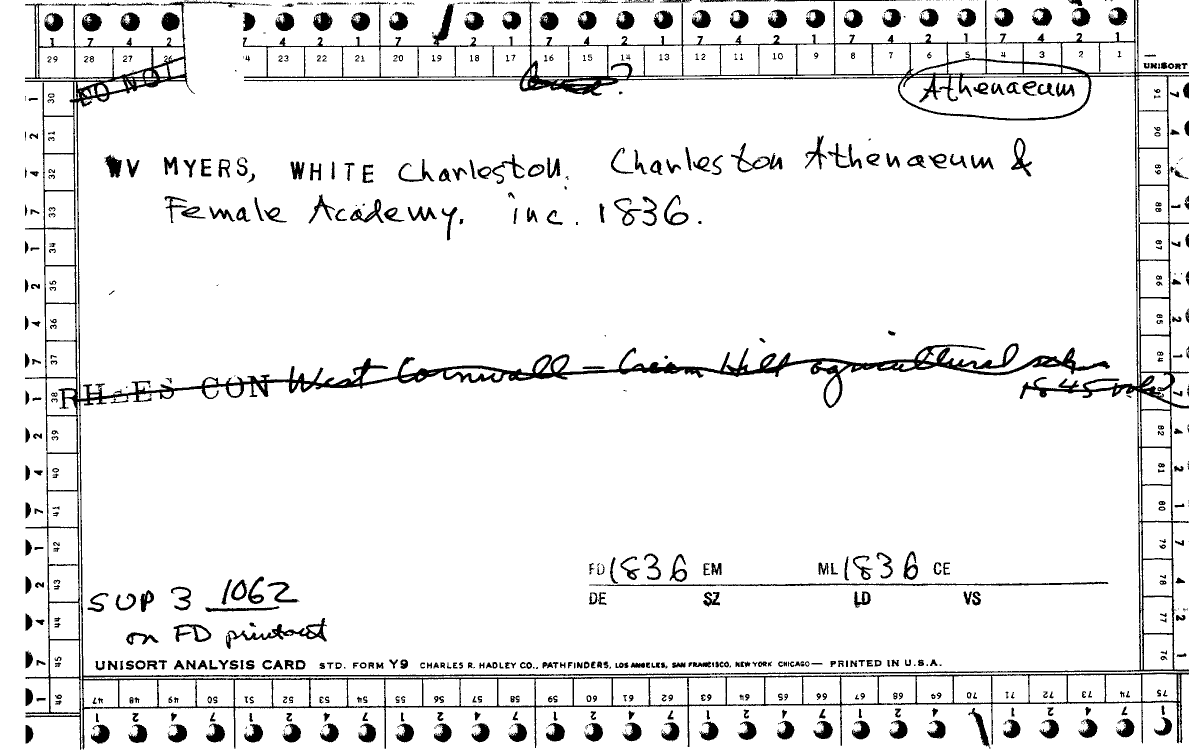 1 7 4 2 7 4 2 1 7 4 2 1 7 4 2 1 7 4 2 1 7 4 2 1 7 4 2 1
29 28 27 26 24 23 22 21 20 19 18 17 16 15 14 13 12 11 10 9 8 7 6 5 4 3 2 1
UNISORT
DO NOT
Athenaeum
WV MYERS, WHITE Charleston. Charleston Athenaeum &
Female Academy. inc. 1836.
RHEES CON West Cornwall – Cream Hill agricultural sch
1845
FD 1836 EM ML 1836 CE
DE SZ LD VS
SUP 3 1062
on FD printout
UNISORT ANALYSIS CARD STD. FORM Y9 CHARLES R. HADLEY CO., PATHFINDERS, LOS ANGELES, SAN FRANCISCO, NEW YORK CHICAGO — PRINTED IN U.S.A.
30 31 32 33 34 35 36 37 38 39 40 41 42 43 44 45 46
91 90 89 88 87 86 85 84 82 81 80 79 78 77 76
47 48 49 50 51 52 53 54 55 56 57 58 59 60 61 62 63 64 65 66 67 68 69 70 71 72 73 74 75
1 2 4 7 1 2 4 7 1 2 4 7 1 2 4 7 1 2 4 7 1 2 4 7 1 2 4 7 1